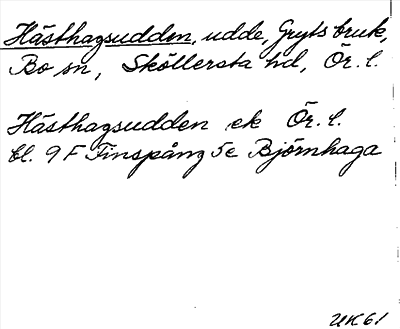 Hästhagsudden, udde, Gryts bruk,
Bo sn, Sköllersta hd, Ör. l.
Hästhagsudden ek Ör. l.
bl. 9 F Finspång 5e Björnhaga
UK61